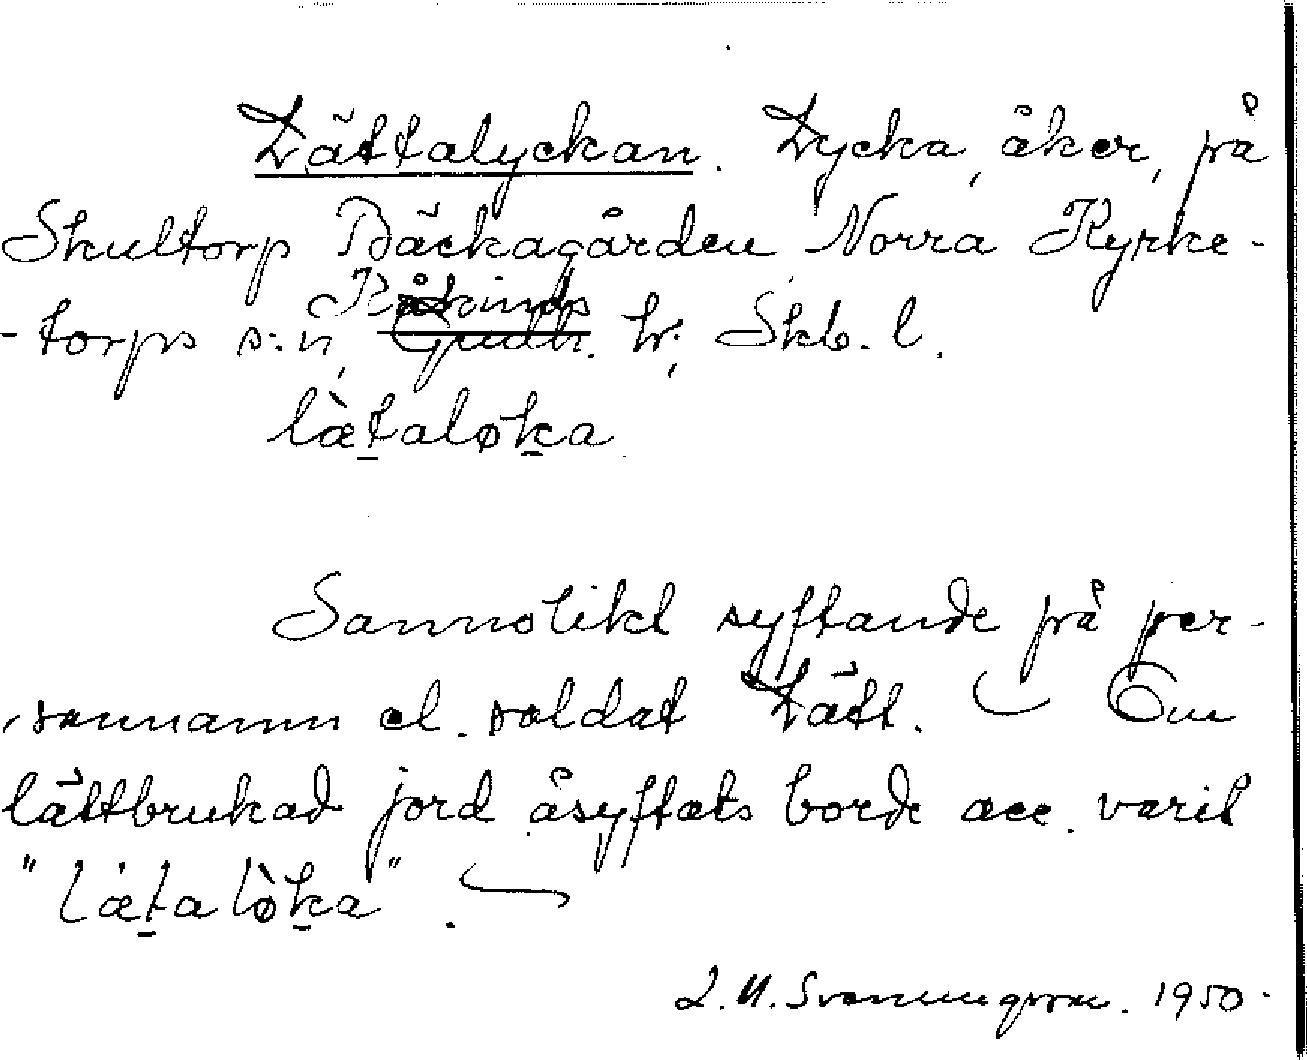 Lättalyckan. Lycka, åker, på
Skultorp Bäckagården Norra Kyrke-
Kåkinds
-torps s:n, Gudh. hr; Skb. l.
lὰt̲aløk̲a
Sannolikt syftande på per-
sonnamn el. soldat Lätt. — Om
lättbrukad jord åsyftats borde acc. varit
"lǽt̲alø̀k̲a". —
1950.